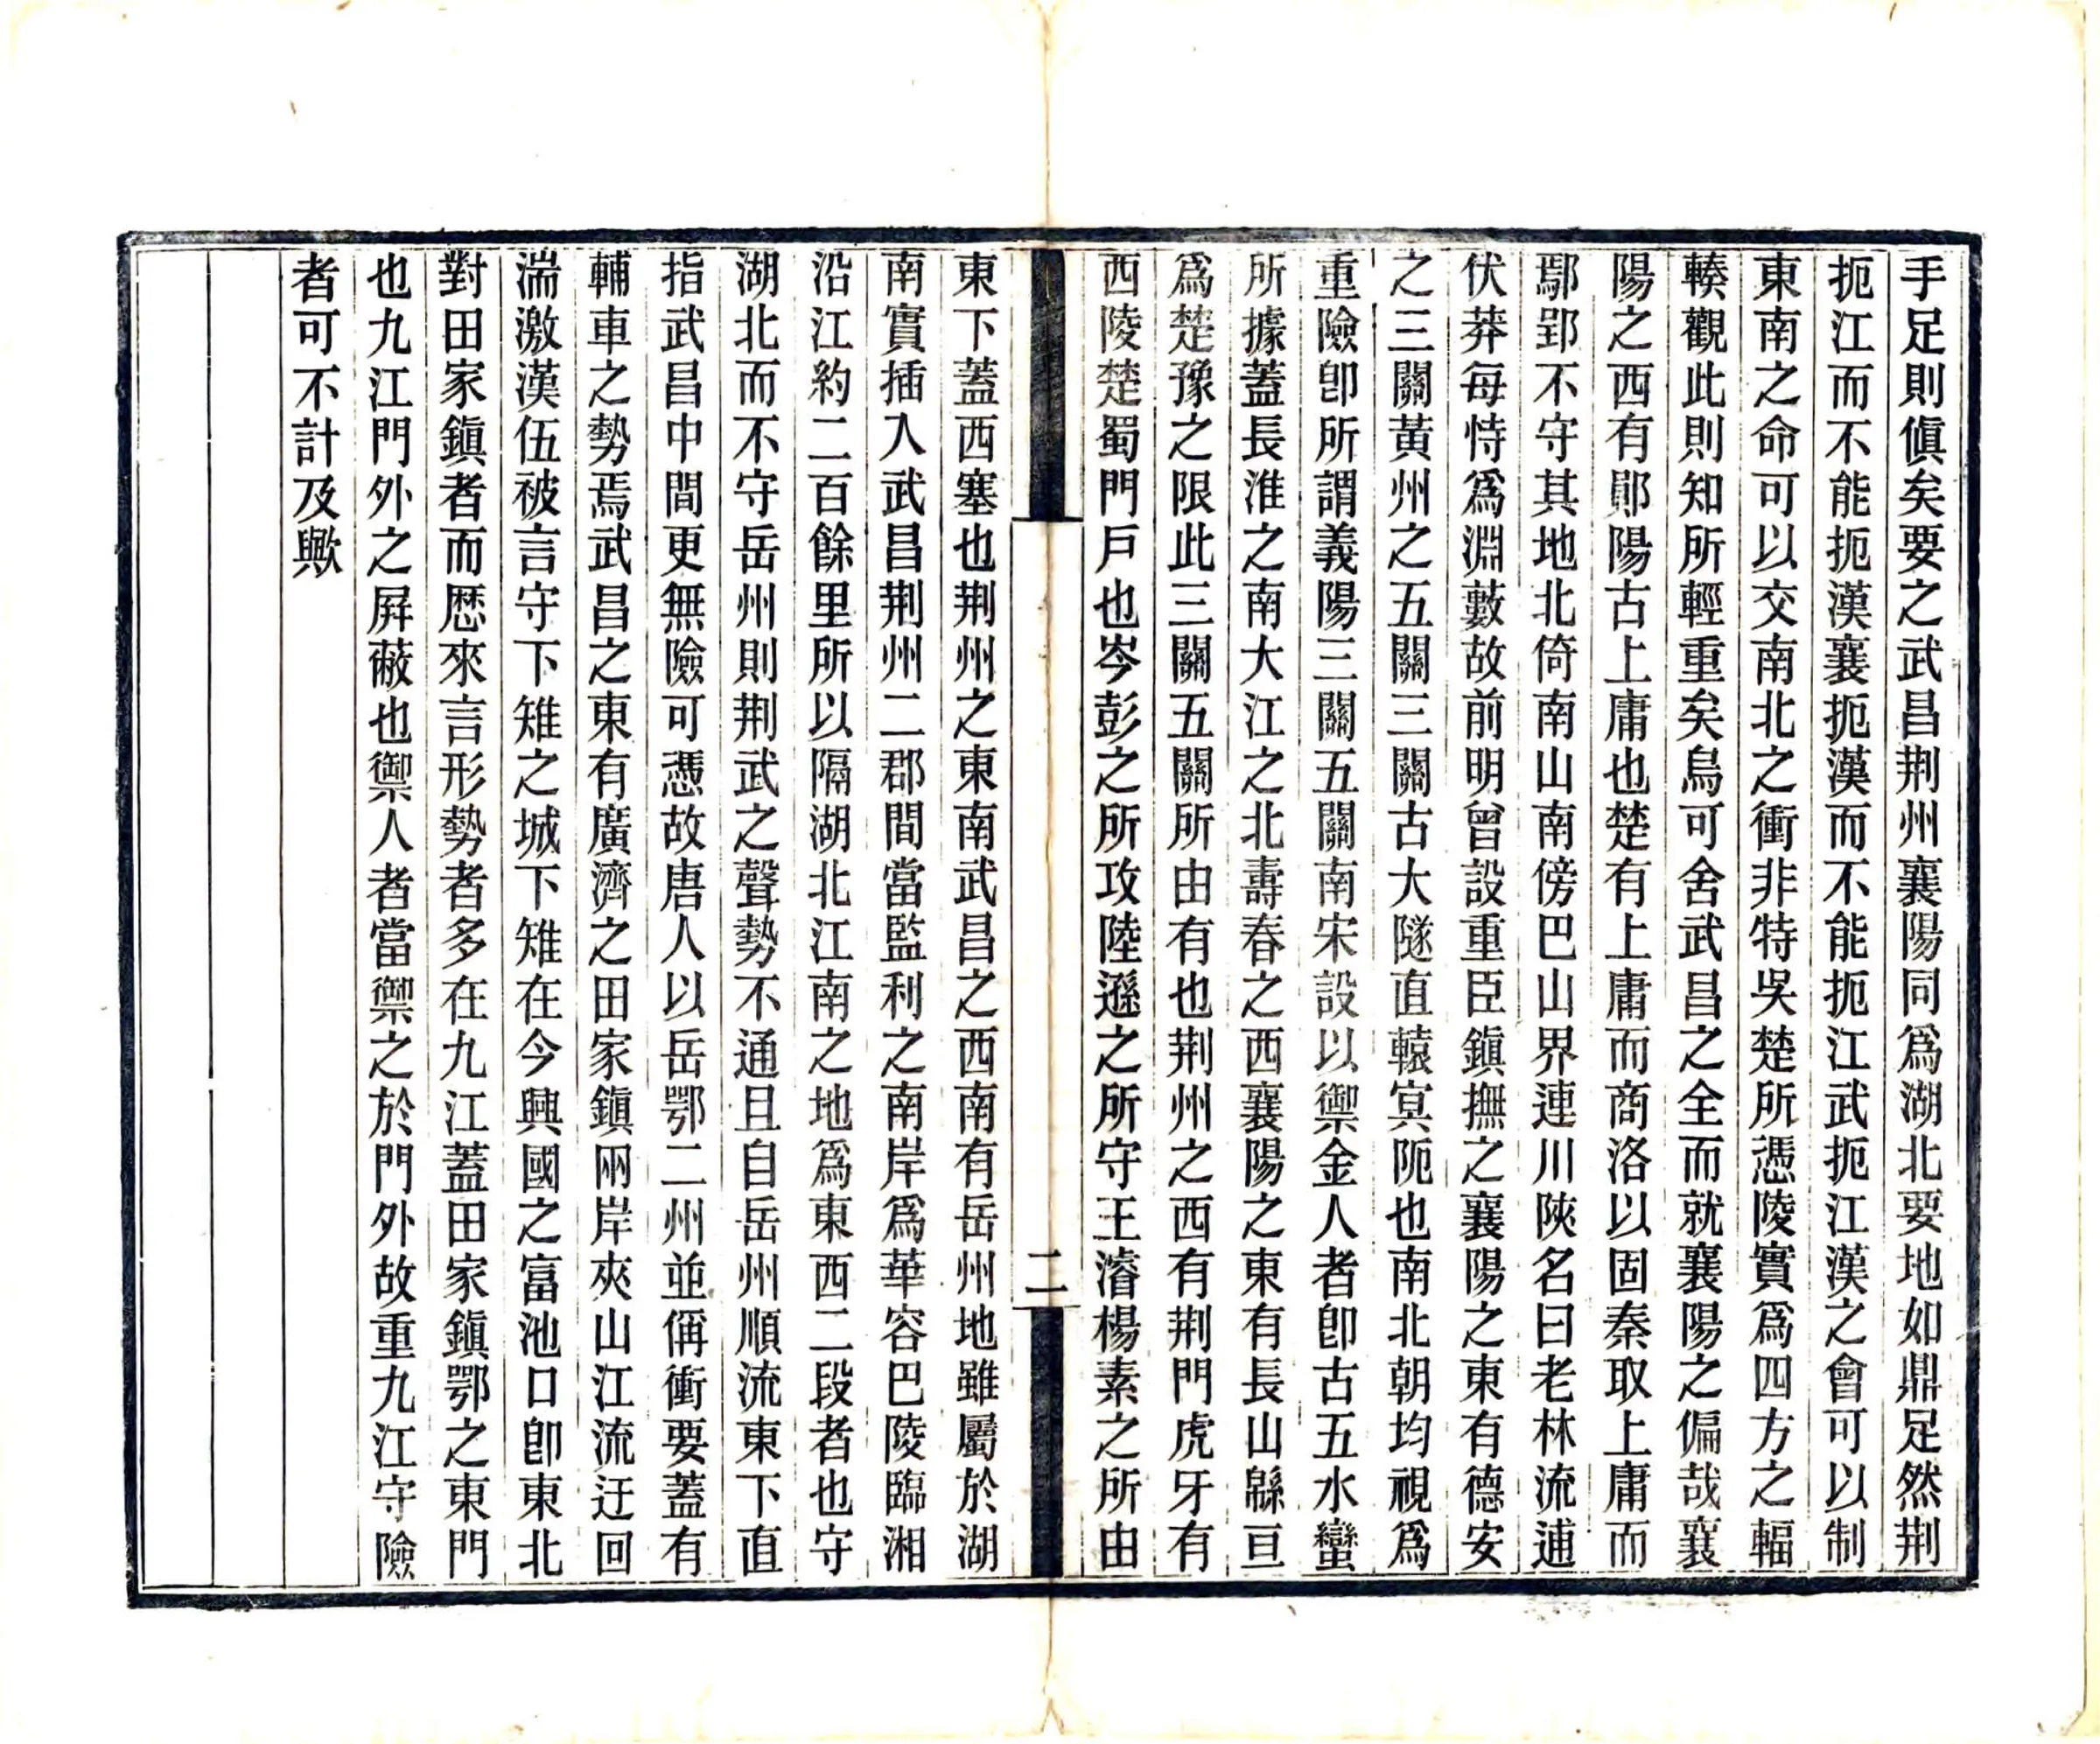 手足則傎矣要之武昌荆州襄陽同爲湖北要地如鼎足然荆
扼江而不能扼漢襄扼漢而不能扼江武扼江漢之會可以制
東南之命可以交南北之衝非特吳楚所憑陵實爲四方之輻
輳觀此則知所輕重矣烏可舍武昌之全而就襄陽之偏哉襄
陽之西有鄖陽古上庸也楚有上庸而商洛以固秦取上庸而
鄢郢不守其地北倚南山南傍巴山界連川陝名曰老林流逋
伏莽每恃爲淵藪故前明曾設重臣鎮撫之襄陽之東有德安
之三關黃州之五關三關古大隧直轅冥阨也南北朝均視爲
重險卽所謂義陽三關五關南宋設以禦金人者卽古五水蠻
所據蓋長淮之南大江之北壽春之西襄陽之東有長山緜亘
爲楚豫之限此三關五關所由有也荆州之西有荆門虎牙有
西陵楚蜀門戶也岑彭之所攻陸遜之所守王濬楊素之所由
二
東下蓋西塞也荆州之東南武昌之西南有岳州地雖屬於湖
南實插入武昌荆州二郡間當監利之南岸爲華容巴陵臨湘
沿江約二百餘里所以隔湖北江南之地爲東西二段者也守
湖北而不守岳州則荆武之聲勢不通且自岳州順流東下直
指武昌中間更無險可憑故唐人以岳鄂二州並偁衝要蓋有
輔車之勢焉武昌之東有廣濟之田家鎮兩岸夾山江流迂回
湍激漢伍被言守下雉之城下雉在今興國之富池口卽東北
對田家鎮者而歷來言形勢者多在九江蓋田家鎮鄂之東門
也九江門外之屏蔽也禦人者當禦之於門外故重九江守險
者可不計及歟